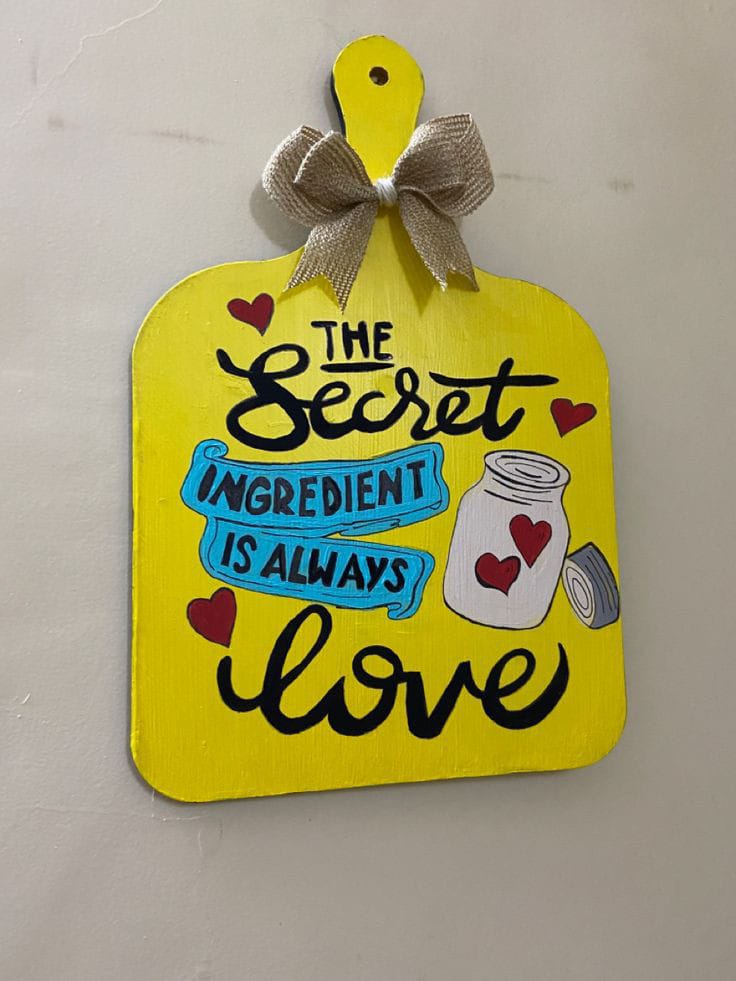 THE
Secret
INGREDIENT
IS ALWAYS
love